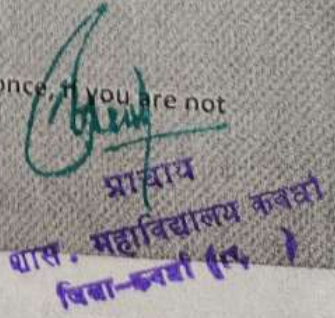 once, if you are not
प्राचार्य
शास. महाविद्यालय कवर्धा
जिला-कवर्धा